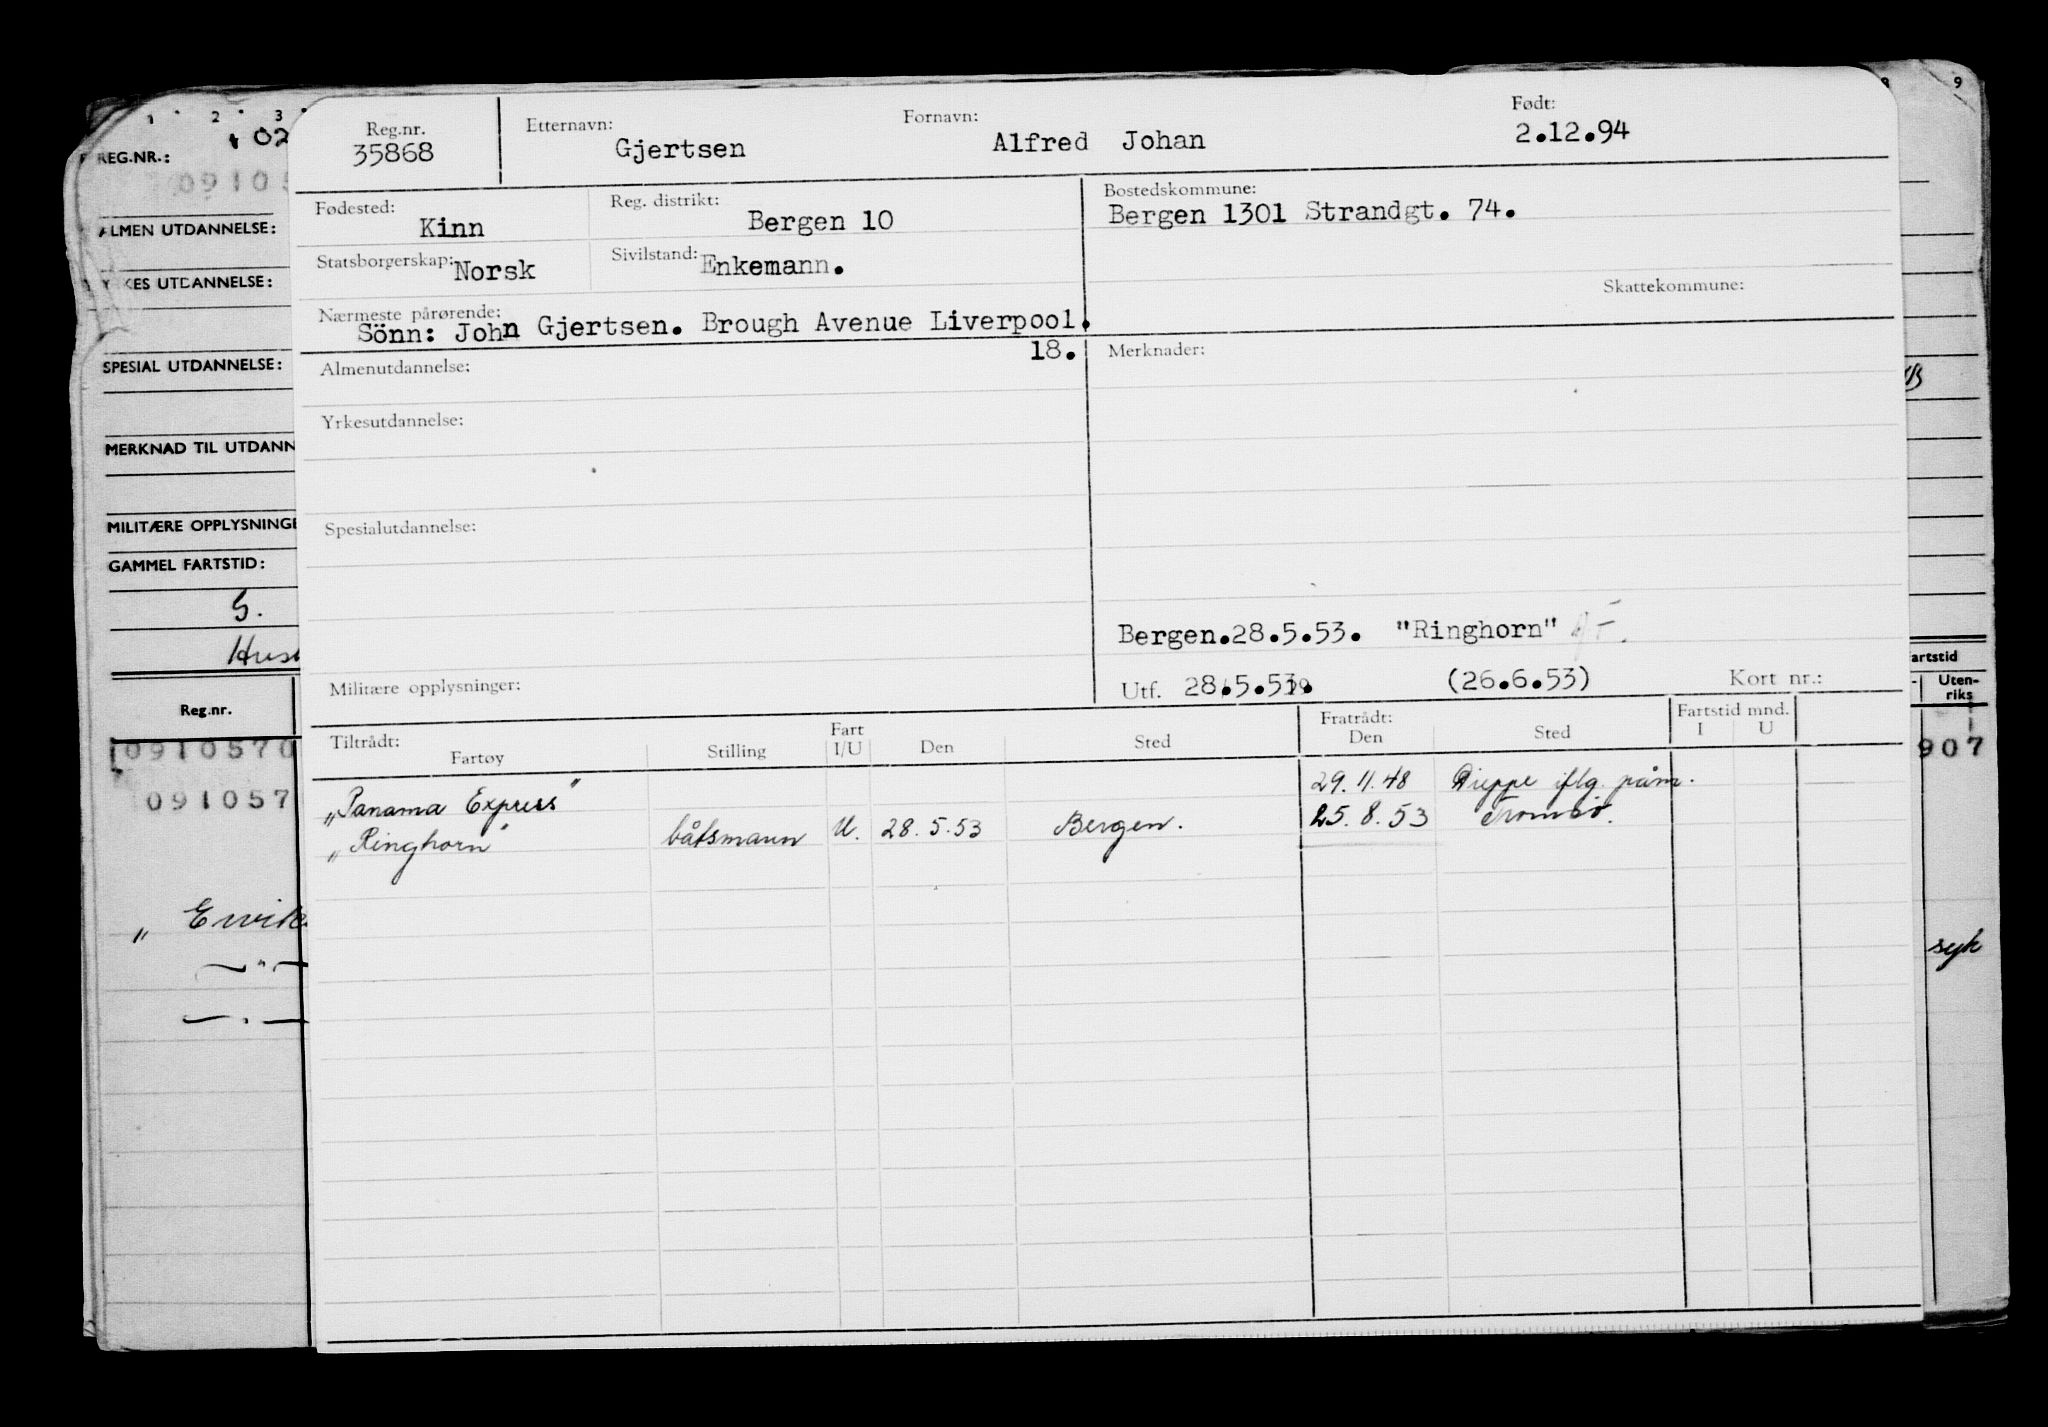 1 2 3
9
REG.NR.:
ALMEN UTDANNELSE:
UTDANNELSE:
SPESIAL UTDANNELSE:
MERKNAD TIL UTDANN
MILITÆRE OPPLYSNINGE
GAMMEL FARTSTID:
S.
Reg.nr.
0910570
091057
artstid
Uten-
riks
907
syk
Reg.nr. 35868
Etternavn: Gjertsen
Fornavn: Alfred Johan
Født: 2.12.94
Fødested: Kinn
Reg. distrikt: Bergen 10
Bostedskommune:
Bergen 1301 Strandgt. 74.
Statsborgerskap: Norsk
Sivilstand: Enkemann.
Skattekommune:
Nærmeste pårørende:
Sönn: John Gjertsen. Brough Avenue Liverpool.
18.
Almenutdannelse:
Merknader:
Yrkesutdannelse:
Spesialutdannelse:
Bergen.28.5.53. "Ringhorn"
Militære opplysninger:
Utf. 28.5.53. (26.6.53) Kort nr.:
Tiltrådt: Fartøy Stilling Fart I/U Den Sted Fratrådt: Den Sted Fartstid mnd. I U
„Panama Express" 29.11.48 Dieppe iflg. påm.
„Ringhorn" båtsmann U. 28.5.53 Bergen. 25.8.53 Tromsö.